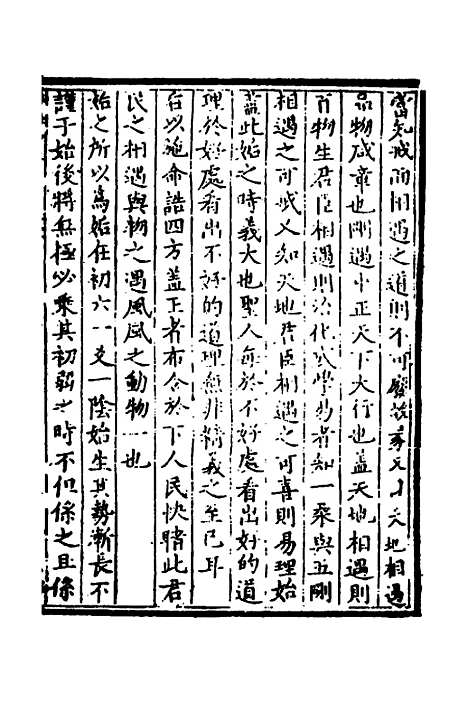 當先戒而相遇之道則不可廢故彖又曰天地相遇
品物咸章也剛遇中正天下大行也蓋天地相遇則
百物生君臣相遇則治化成學易者知一柔與五剛
相遇之可戒又知天地君臣相遇之可喜則易理始
蓋此姤之時義大也聖人每於不好處看出好的道
理於好處看出不好的道理無非精義之至已耳
后以施命誥四方蓋王者布令於下人民快睹此君
民之相遇與物之遇風風之動物一也
姤之所以為姤在初六一爻一陰始生其勢漸長不
謹于始後將無極必乘其初弱之時不但係之且係